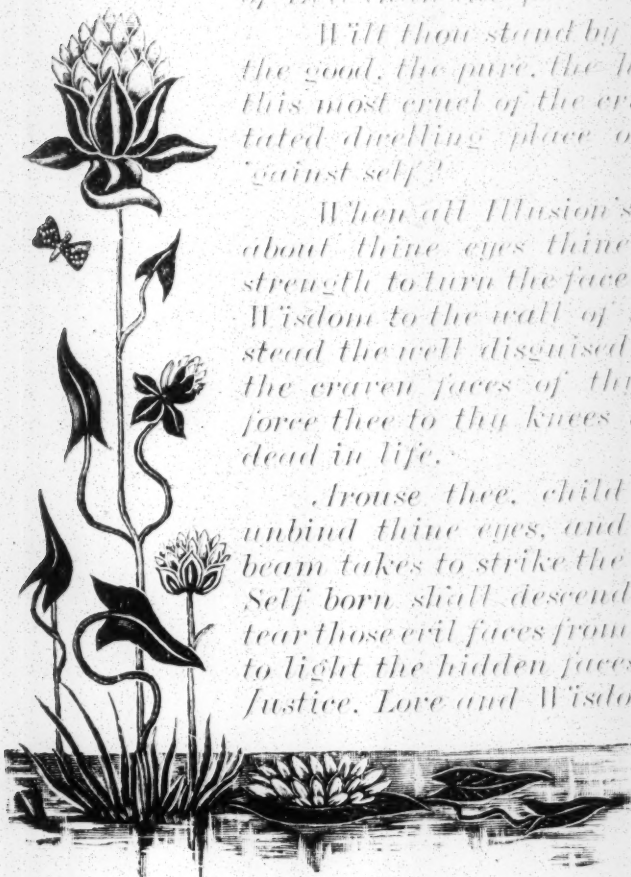 Wilt thou stand by
the good, the pure, the
this most cruel of the
tated dwelling place
'gainst self?
When all Illusion's
about thine eyes thine
strength to turn the face
Wisdom to the wall of
stead the well disguised
the craven faces of
force thee to thy knees
dead in life.
Arouse thee, child
unbind thine eyes, and
beam takes to strike the
Self born shall descend
tear those evil faces from
to light the hidden faces
Justice, Love and